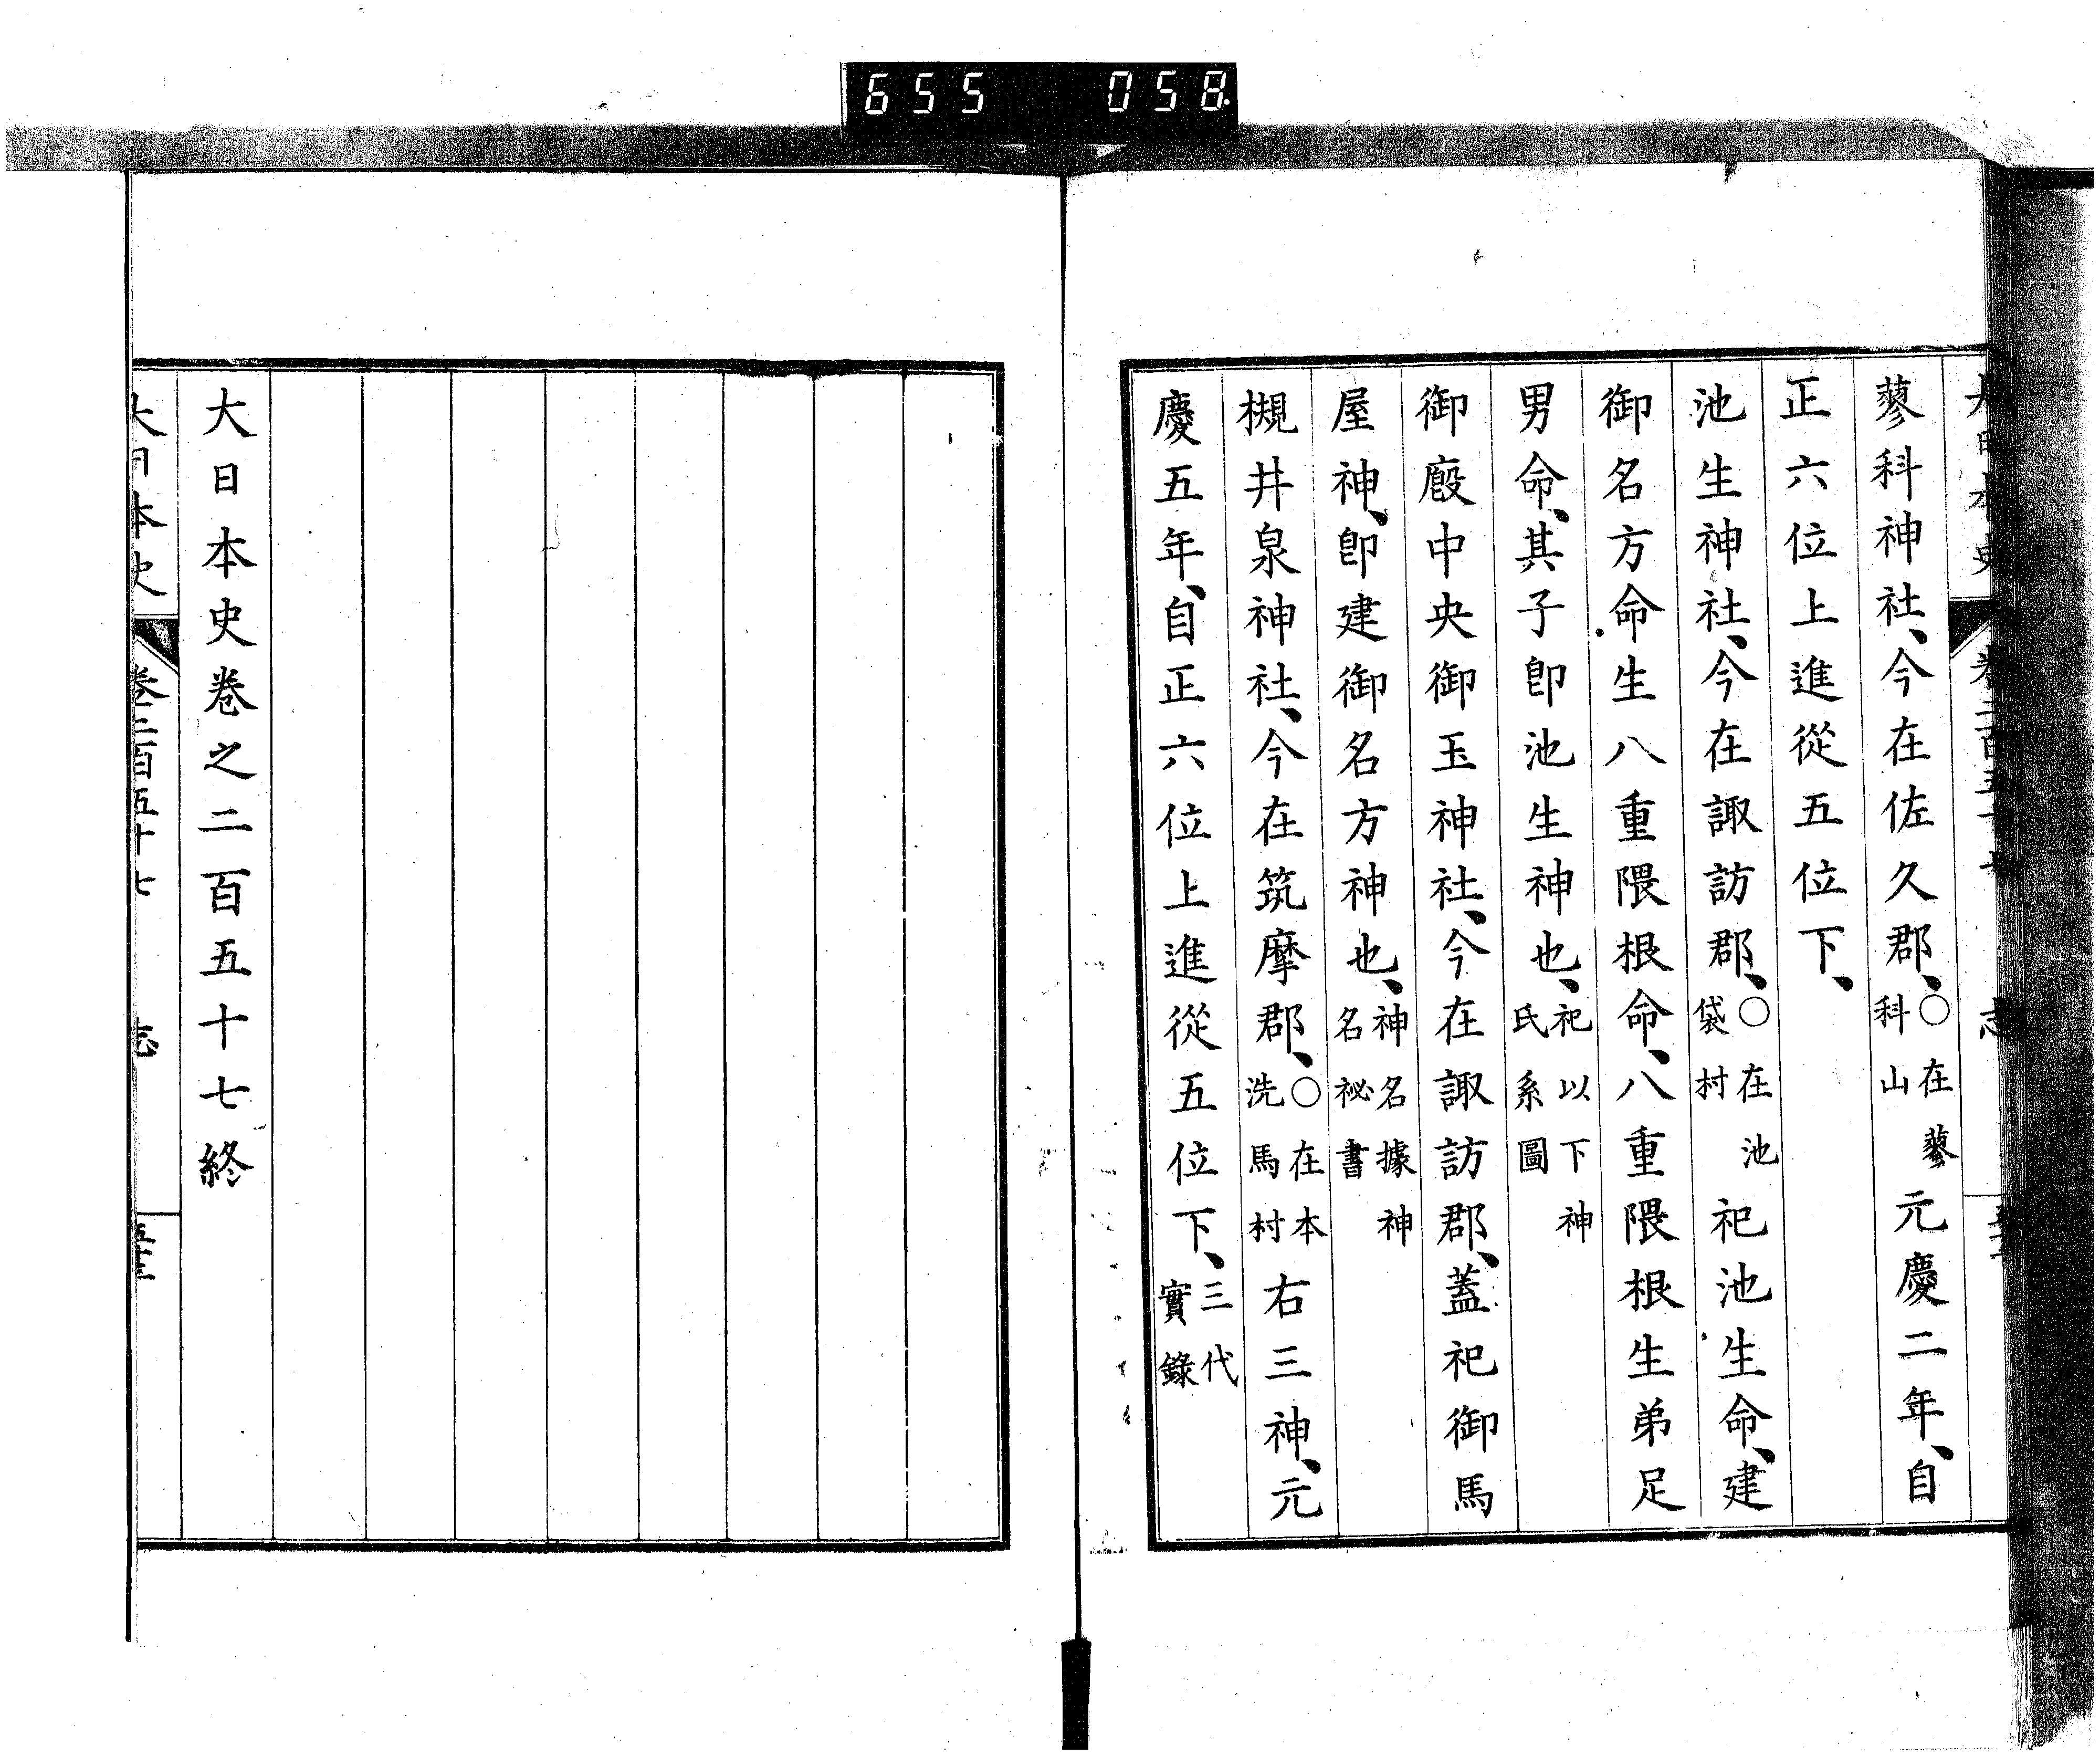 655 058
蓼科神社、今在佐久郡、○在蓼科山元慶二年、自
正六位上進從五位下、
池生神社、今在諏訪郡、○在池袋村祀池生命、建
御名方命生八重隈根命、八重隈根生弟足
男命、其子卽池生神也、祀以下神氏系圖
御廐中央御玉神社、今在諏訪郡、蓋祀御馬
屋神、卽建御名方神也、神名據神名祕書
槻井泉神社、今在筑摩郡、○在本洗馬村右三神、元
慶五年、自正六位上進從五位下、三代實錄
大日本史卷之二百五十七終
大日本史 卷二百五十七 志